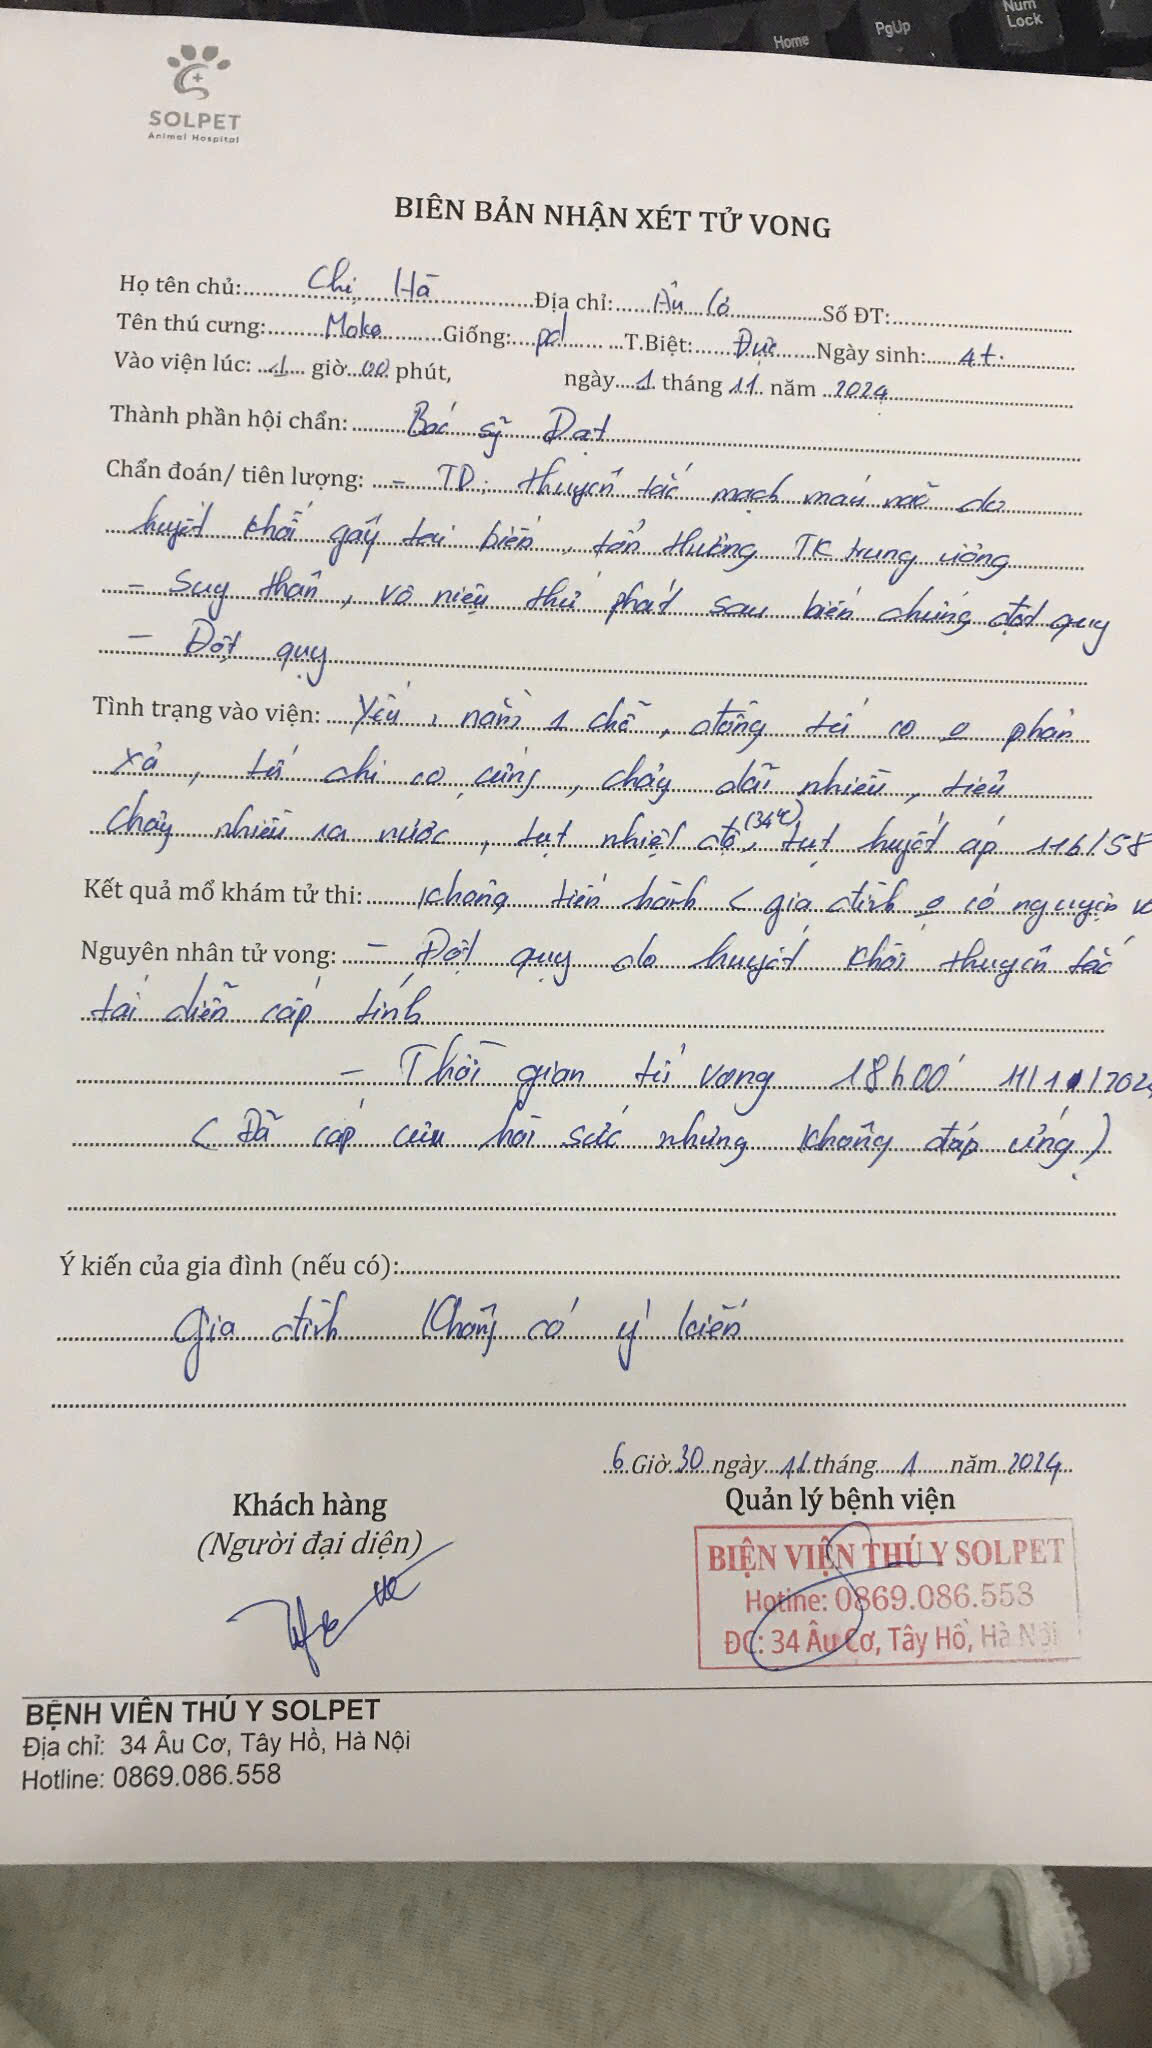 Home
PgUp
Num
Lock
SOLPET
Animal Hospital
BIÊN BẢN NHẬN XÉT TỬ VONG
Họ tên chủ: Chị Hà Địa chỉ: Âu Cơ Số ĐT:
Tên thú cưng: Moka Giống: pd T.Biệt: Đực Ngày sinh: 4t.
Vào viện lúc: giờ 00 phút, ngày 1 tháng 11 năm 2024
Thành phần hội chẩn: Bác sỹ Đạt
Chẩn đoán/ tiên lượng: - TD: thuyên tắc mạch máu não do
huyết khối gây tai biến, tổn thương TK trung ương
- Suy thận, vô niệu thứ phát sau biến chứng đột quỵ
- Đột quỵ
Tình trạng vào viện: Yếu, nằm 1 chỗ, đồng tử co o phản
xạ, tứ chi co cứng, chảy dãi nhiều, tiêu
chảy nhiều ra nước, tụt nhiệt độ (34°c), tụt huyết áp 116/58
Kết quả mổ khám tử thi: Không tiến hành < gia đình o có nguyện
Nguyên nhân tử vong: - Đột quỵ do huyết khối thuyên tắc
tái diễn cấp tính
- Thời gian tử vong 18h00'
(Đã cấp cứu hồi sức nhưng không đáp ứng)
Ý kiến của gia đình (nếu có):
Gia đình không có ý kiến
6 Giờ 30 ngày 11 tháng 1 năm 2024
Khách hàng
Quản lý bệnh viện
(Người đại diện)
BIỆN VIỆN THÚ Y SOLPET
Hotine: 0869.086.558
ĐC: 34 Âu Cơ, Tây Hồ, Hà Nội
BỆNH VIÊN THÚ Y SOLPET
Địa chỉ: 34 Âu Cơ, Tây Hồ, Hà Nội
Hotline: 0869.086.558